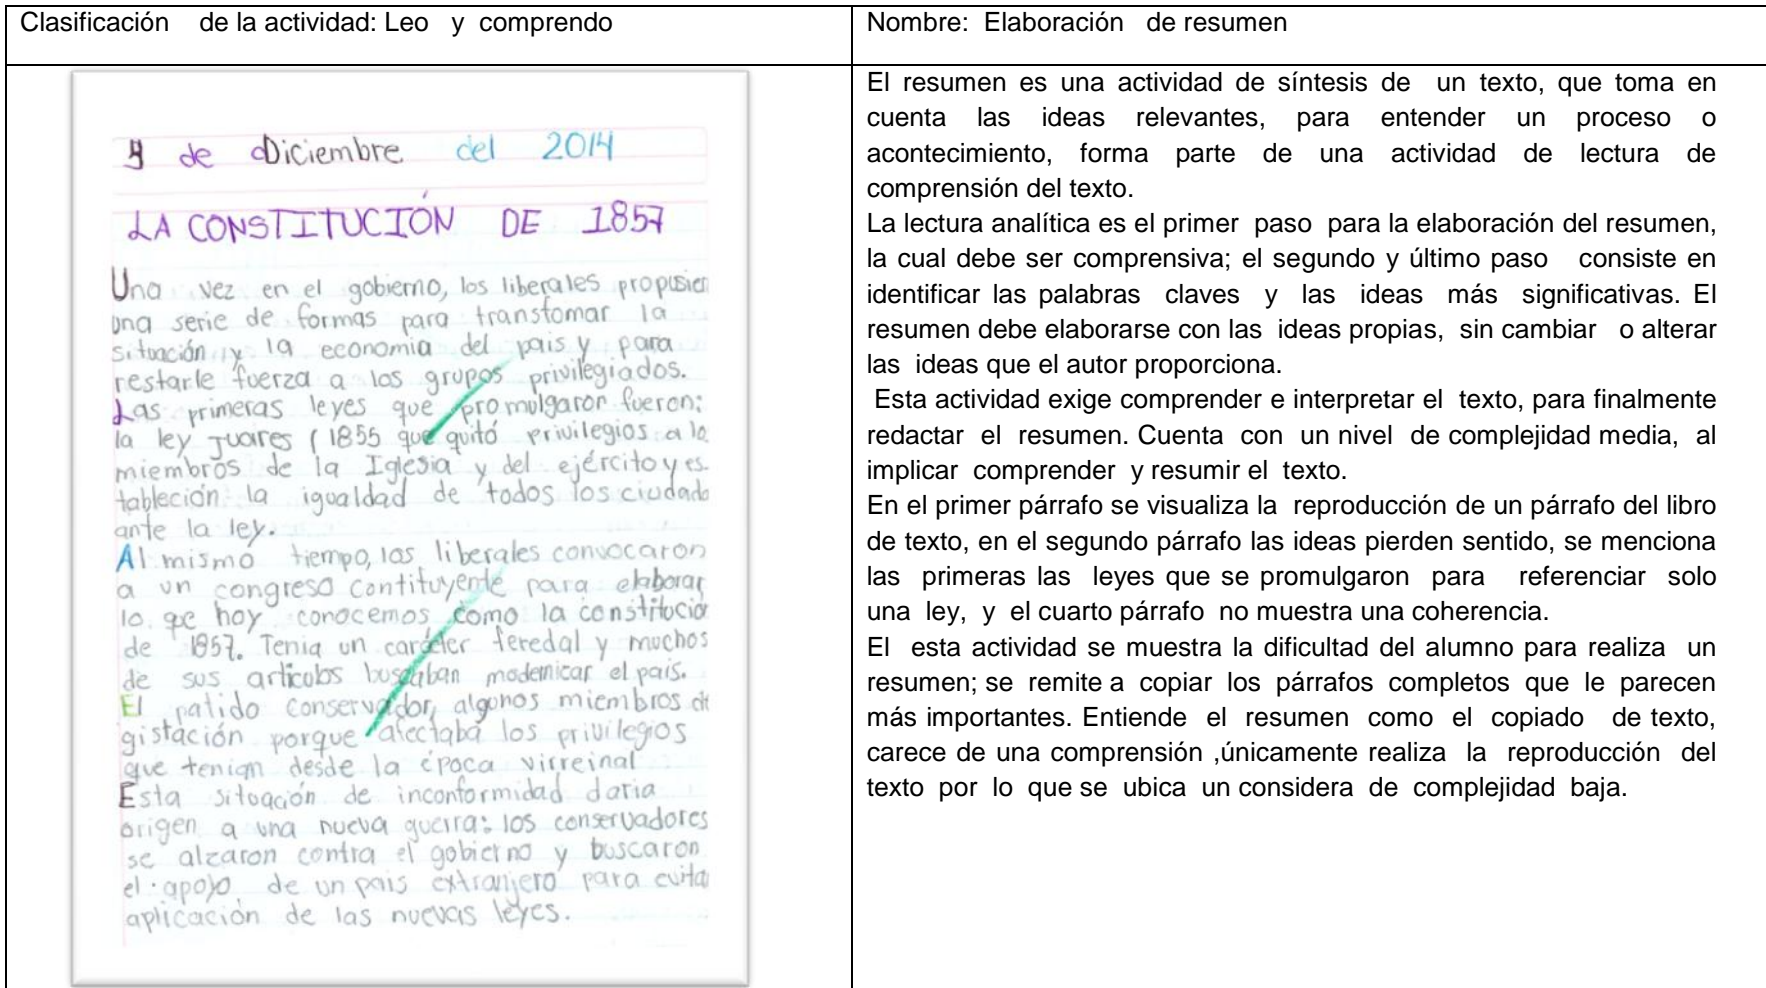 Clasificación de la actividad: Leo y comprendo
Nombre: Elaboración de resumen
4 de Diciembre del 2014
LA CONSTITUCIÓN DE 1857
Una vez en el gobierno, los liberales propusier
una serie de formas para transfomar la
situación y la economia del pais y para
restarle fuerza a los grupos privilegiados.
Las primeras leyes que promulgaror fueron:
la ley Juares (1855 que quitó privilegios a lo
miembros de la Iglesia y del ejército y es-
tableción la igualdad de todos los ciudada
ante la ley.
Al mismo tiempo, los liberales convocaron
a un congreso contituyente para elaborar
lo que hoy conocemos como la constitució
de 1857. Tenia un carácter feredal y muchos
de sus articulos buscaban modernicar el país.
El patido conservador, algunos miembros de
gistación porque afectaba los privilegios
que tenian desde la época virreinal
Esta situación de inconformidad daria
origen a una nueva guerra: los conservadores
se alzaron contra el gobierno y buscaron
el apoyo de un pais extranjero para evita
aplicación de las nuevas leyes.
El resumen es una actividad de síntesis de un texto, que toma en
cuenta las ideas relevantes, para entender un proceso o
acontecimiento, forma parte de una actividad de lectura de
comprensión del texto.
La lectura analítica es el primer paso para la elaboración del resumen,
la cual debe ser comprensiva; el segundo y último paso consiste en
identificar las palabras claves y las ideas más significativas. El
resumen debe elaborarse con las ideas propias, sin cambiar o alterar
las ideas que el autor proporciona.
Esta actividad exige comprender e interpretar el texto, para finalmente
redactar el resumen. Cuenta con un nivel de complejidad media, al
implicar comprender y resumir el texto.
En el primer párrafo se visualiza la reproducción de un párrafo del libro
de texto, en el segundo párrafo las ideas pierden sentido, se menciona
las primeras las leyes que se promulgaron para referenciar solo
una ley, y el cuarto párrafo no muestra una coherencia.
El esta actividad se muestra la dificultad del alumno para realiza un
resumen; se remite a copiar los párrafos completos que le parecen
más importantes. Entiende el resumen como el copiado de texto,
carece de una comprensión ,únicamente realiza la reproducción del
texto por lo que se ubica un considera de complejidad baja.